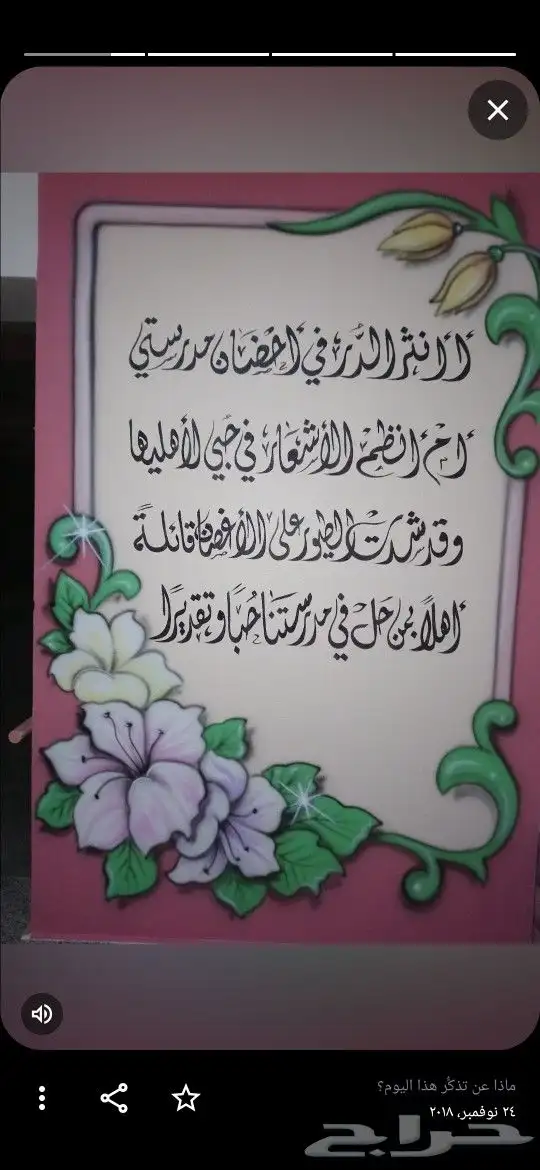 أأنثر الدرر في أحضان مدرستي
أم أنظم الأشعار في حبي لأهليها
وقد شدت الطيور على الأغصان قائلةً
أهلاً بمن حل في مدرستنا حُبًا وتقديرًا
ماذا عن تذكُّر هذا اليوم؟
٢٤ نوفمبر، ٢٠١٨
حراج